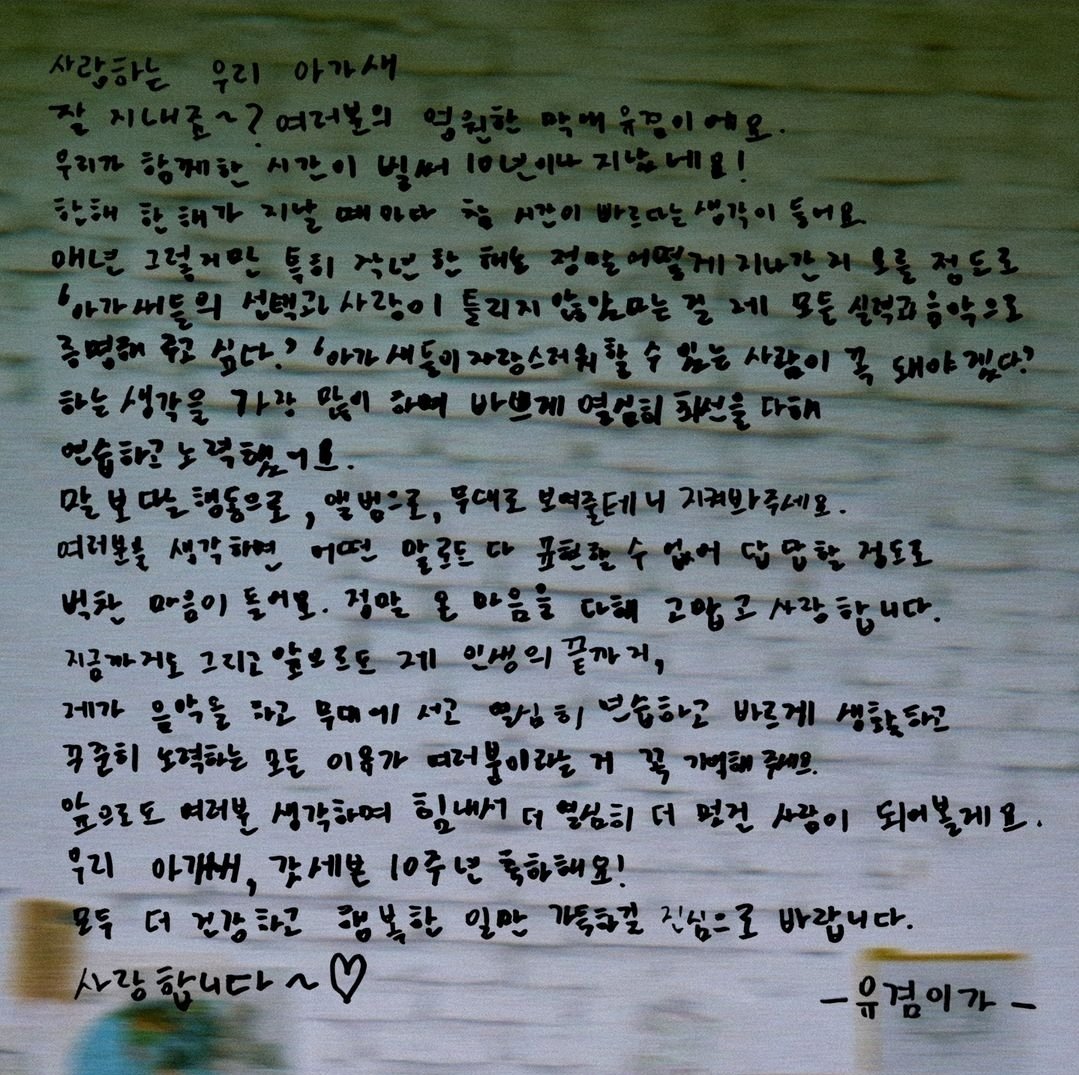 사랍하는 우리 아가새
잘 지내죠~? 여러분의 영원한 막내 유겸이에요.
우리가 함께한 시간이 벌써 10년이나 지났네요!
한해 한해가 지날 때마다 참 시간이 빠르다는 생각이 들어요
매년 그렇지만 특히 작년 한 해는 정말 어떻게 지나간지 모를 정도로
'아가새들의 선택과 사랑이 틀리지 않았다는 걸 제 모든 실력과 음악으로
증명해 주고 싶다.' '아가새들이 자랑스러워 할 수 있는 사람이 꼭 돼야겠다.'
하는 생각을 가장 많이 하며 바쁘게 열심히 최선을 다해
연습하고 노력했어요.
말보다는 행동으로, 앨범으로, 무대로 보여줄테니 지켜봐주세요.
여러분을 생각하면 어떤 말로도 다 표현할 수 없어 답답할 정도로
벅찬 마음이 들어요. 정말 온 마음을 다해 고맙고 사랑합니다.
지금까지도 그리고 앞으로도 제 인생의 끝까지,
제가 음악을 하고 무대에 서고 열심히 연습하고 바르게 생활하고
꾸준히 노력하는 모든 이유가 여러분이라는 거 꼭 기억해주세요.
앞으로도 여러분 생각하며 힘내서 더 열심히 더 멋진 사람이 되어볼게요.
우리 아가새, 갓세븐 10주년 축하해요!
모두 더 건강하고 행복한 일만 가득하길 진심으로 바랍니다.
사랑합니다~♡
-유겸이가-